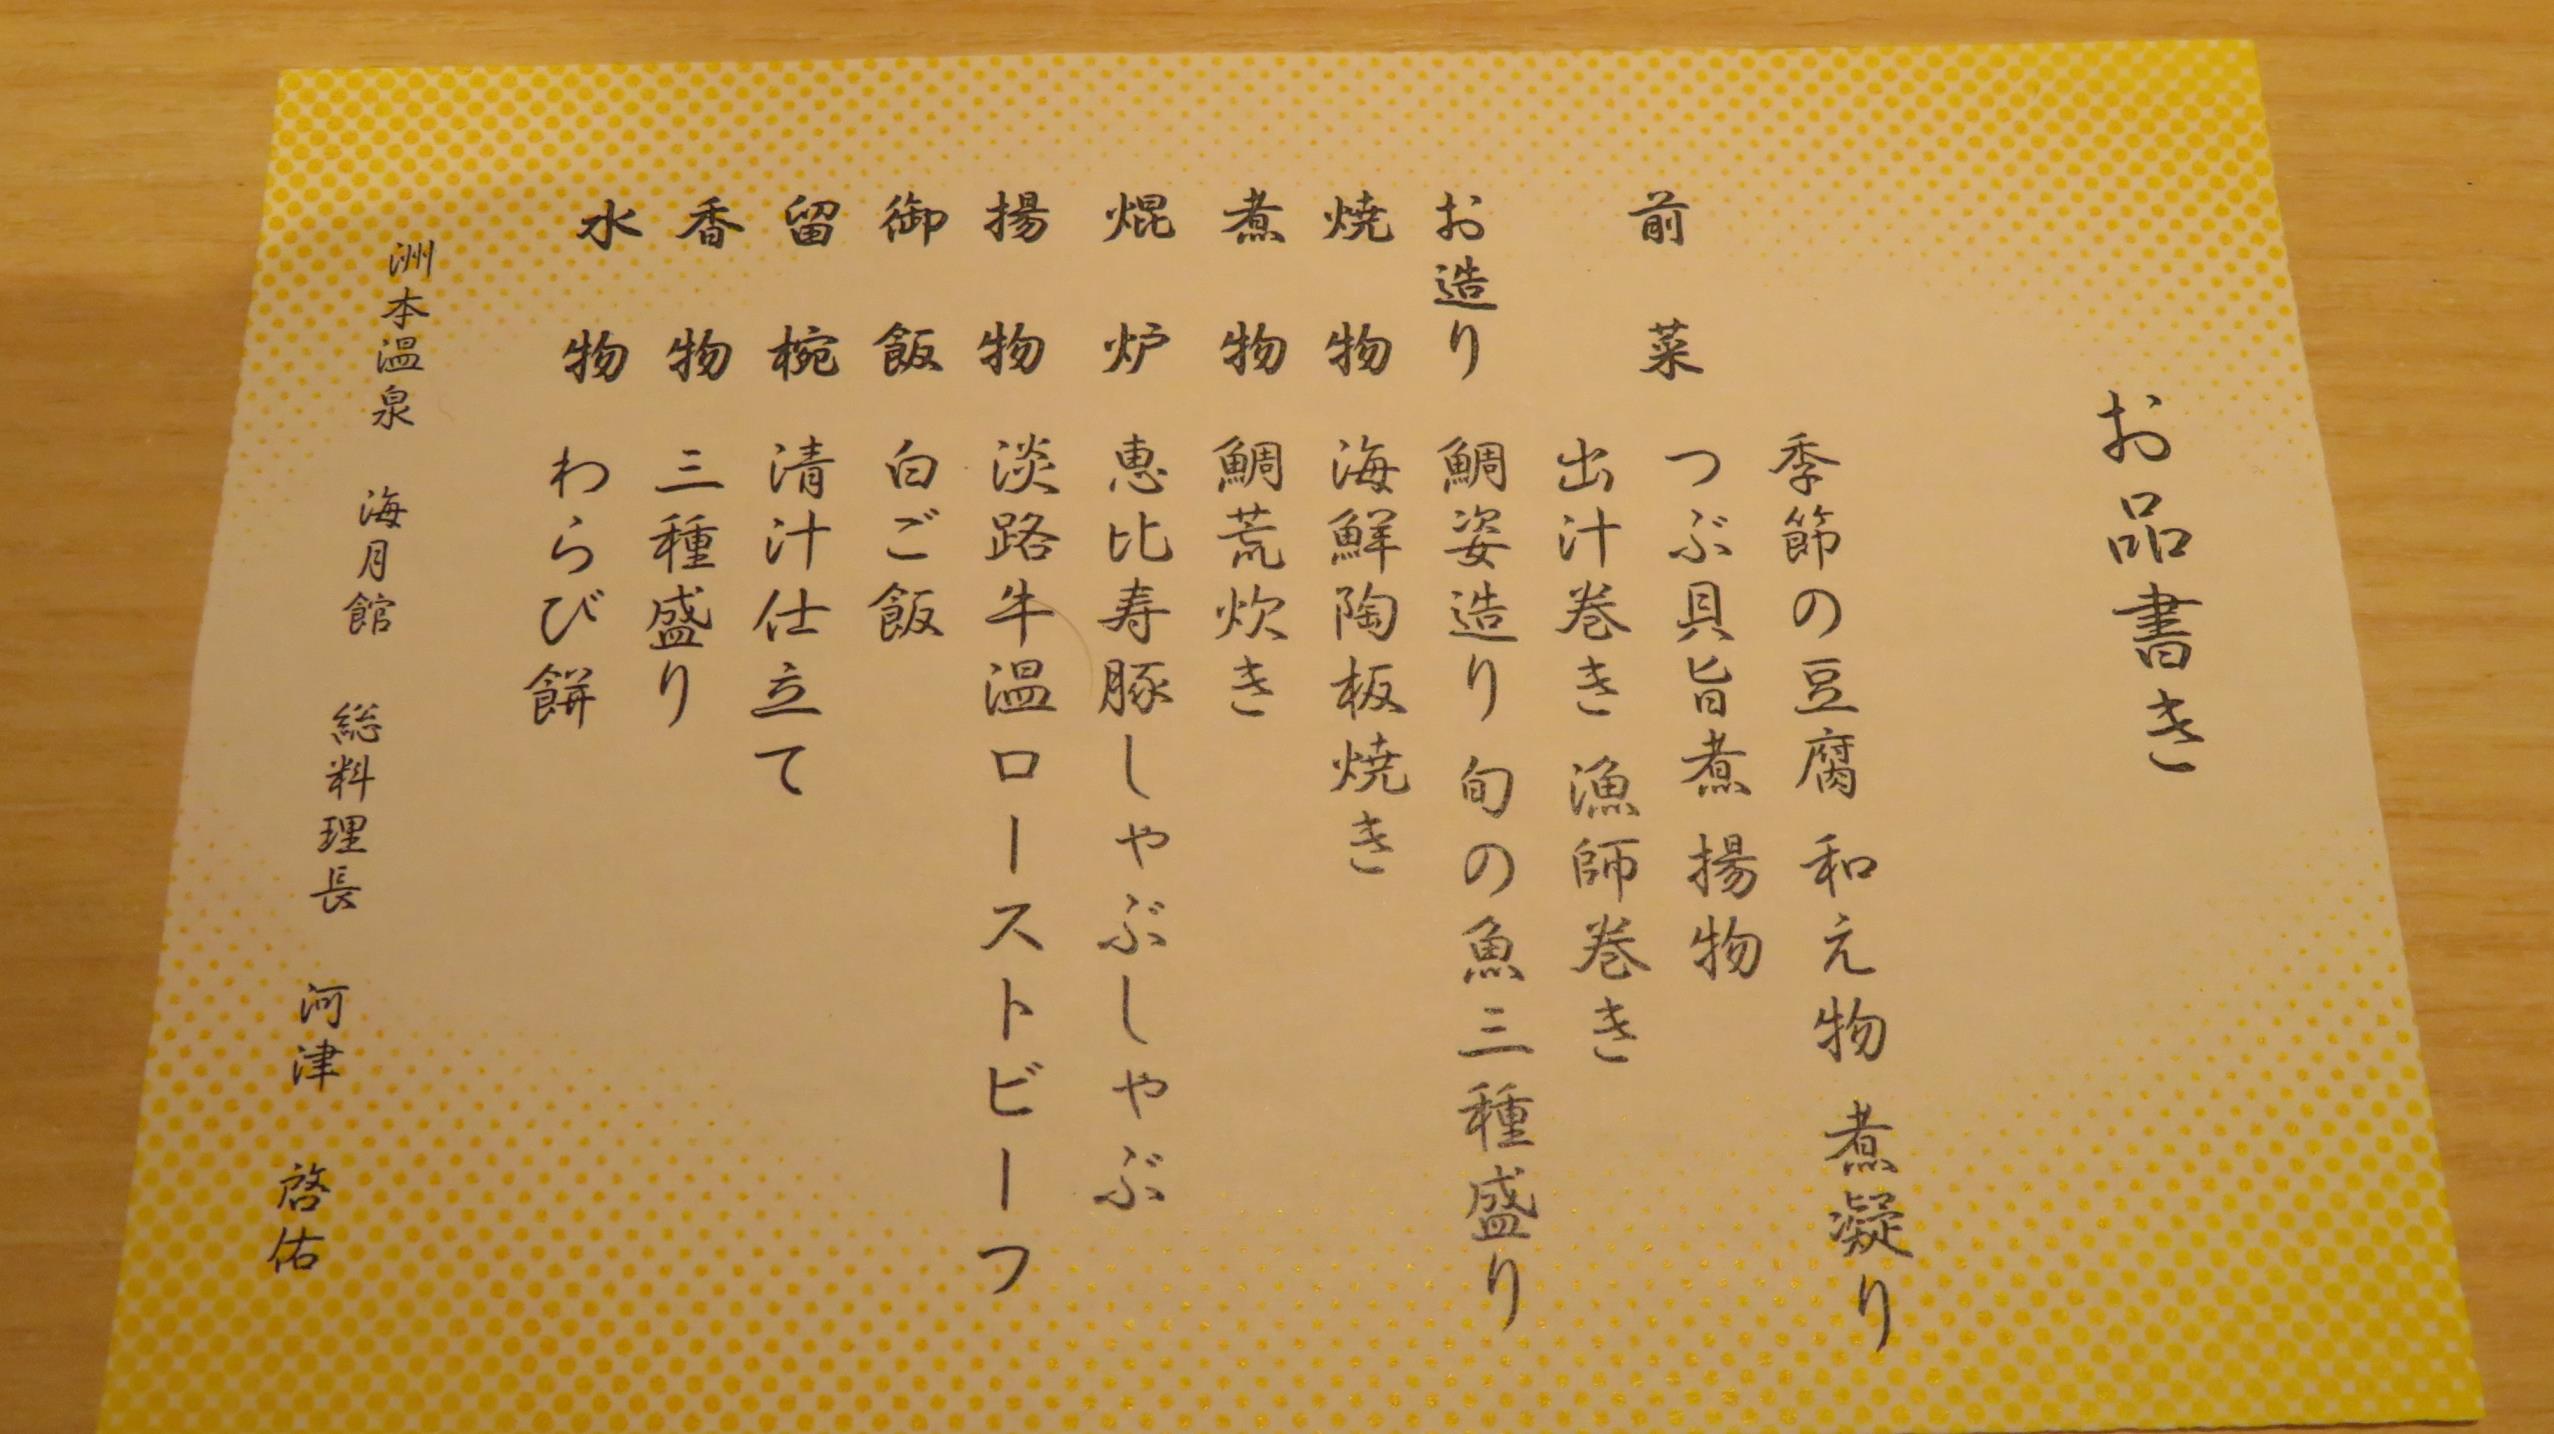 お品書き
季節の豆腐 和え物 煮凝り
前菜 つぶ貝旨煮 揚物
出汁巻き 漁師巻き
お造り 鯛姿造り 旬の魚三種盛り
焼物 海鮮陶板焼き
煮物 鯛荒炊き
焜炉 恵比寿豚しゃぶしゃぶ
揚物 淡路牛温ローストビーフ
御飯 白ご飯
留椀 清汁仕立て
香物 三種盛り
水物 わらび餅
洲本温泉 海月館 総料理長 河津 啓佑